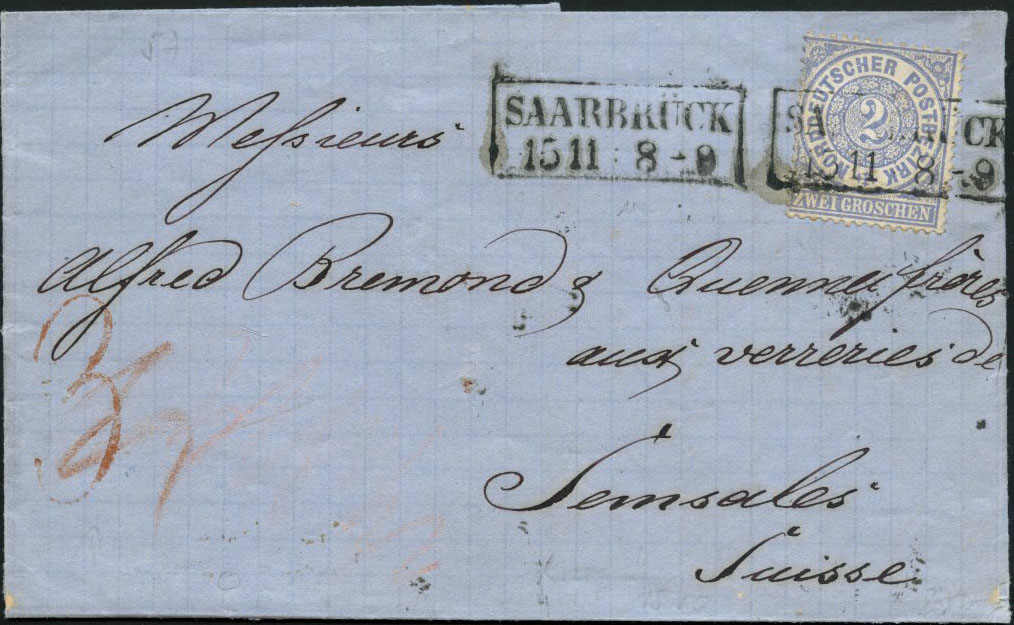 SAARBRÜCK
15 11 8-9
SAARBRÜCK
15 11 8-9
NORDDEUTSCHER POSTBEZIRK
2
ZWEI GROSCHEN
Messieurs
Alfred Bremond & Quennec frères
aux verreries de
Semsales
Suisse
3